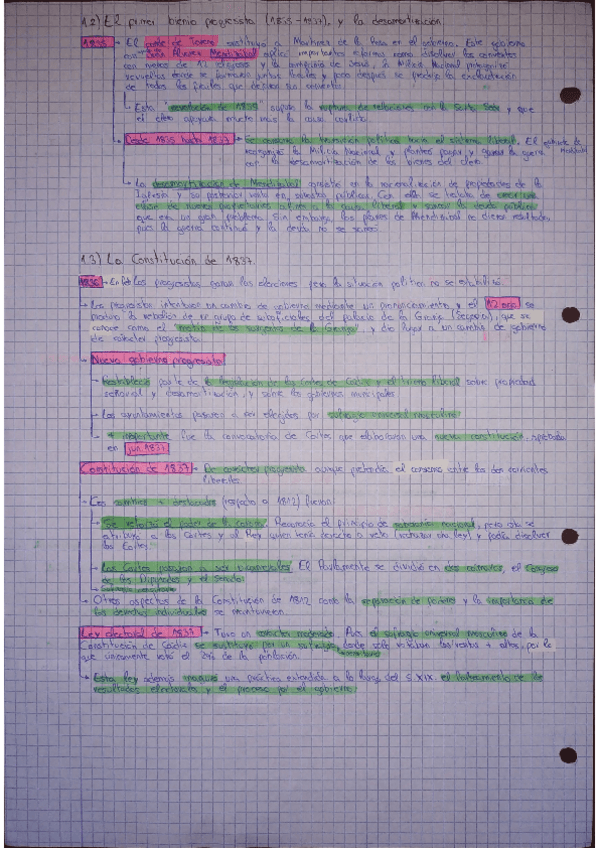 1.2) El primer bienio progresista (1835-1837), y la desamortización
1835 El conde de Toreno sustituyó a Martínez de la Rosa en el gobierno. Este gobierno
con Juan Álvarez Mendizábal aplicó importantes reformas como disolver los conventos
con menos de 12 religiosos y la compañía de Jesús, la Milicia Nacional protagonizó
revueltas donde se formaron juntas locales y poco después se produjo la exclaustración
de todos los frailes que dejaron sus conventos.
Esta "revolución de 1835" supuso la ruptura de relaciones con la Santa Sede y que
el clero apoyara mucho más la causa carlista.
Desde 1835 hasta 1837 Se consumó la transición política hacia el sistema liberal. El gobierno de Mendizábal
reorganizó la Milicia Nacional y planteó pagar y ganar la guerra
con la desamortización de los bienes del clero.
La desamortización de Mendizábal consistió en la nacionalización de propiedades de la
Iglesia y su posterior venta en subasta pública. Con ella se trataba de crear una
clase de nuevos propietarios afines a la causa liberal y sanear la deuda pública
que era un gran problema. Sin embargo, los planes de Mendizábal no dieron resultado
pues la guerra continuó y la deuda no se saneó.
1.3) La Constitución de 1837.
1836 En los progresistas ganan las elecciones pero la situación política no se estabilizó.
Los progresistas intentaron un cambio de gobierno mediante un pronunciamiento, y el 12 ago. se
produjo la rebelión de un grupo de suboficiales del palacio de la Granja (Segovia), que se
conoce como el "motín de los sargentos de la Granja", y dio lugar a un cambio de gobierno
de carácter progresista.
Nuevo gobierno progresista
Restableció parte de la legislación de las Cortes de Cádiz y el trienio liberal sobre propiedad
señorial y desamortización, y sobre los gobiernos municipales.
Los ayuntamientos pasaron a ser elegidos por sufragio universal masculino.
+ importante fue la convocatoria de Cortes que elaboraron una nueva constitución, aprobada
en jun 1837
Constitución de 1837 De carácter progresista aunque pretendía el consenso entre las dos corrientes
liberales.
Los cambios + destacados (respecto a 1812) fueron:
Se reforzó el poder de la corona. Reconocía el principio de soberanía nacional, pero ota se
atribuyó a las Cortes y al Rey quien tenía derecho a veto (rechazar una ley) y podía disolver
las Cortes.
Las Cortes pasaron a ser bicamerales. El Parlamento se dividió en dos cámaras, el Congreso
de los Diputados y el Senado.
Otros aspectos de la Constitución de 1812 como la separación de poderes y la importancia de
los derechos individuales se mantuvieron.
Ley electoral de 1837 Tuvo un carácter moderado. Pasó el sufragio universal masculino de la
Constitución de Cádiz se sustituye por un sufragio censitario, donde solo votaban las rentas + altas, por lo
que únicamente votó el 2% de la población.
Esta ley además inauguró una práctica extendida a lo largo del s XIX: el falseamiento de los
resultados electorales y el proceso por el gobierno.